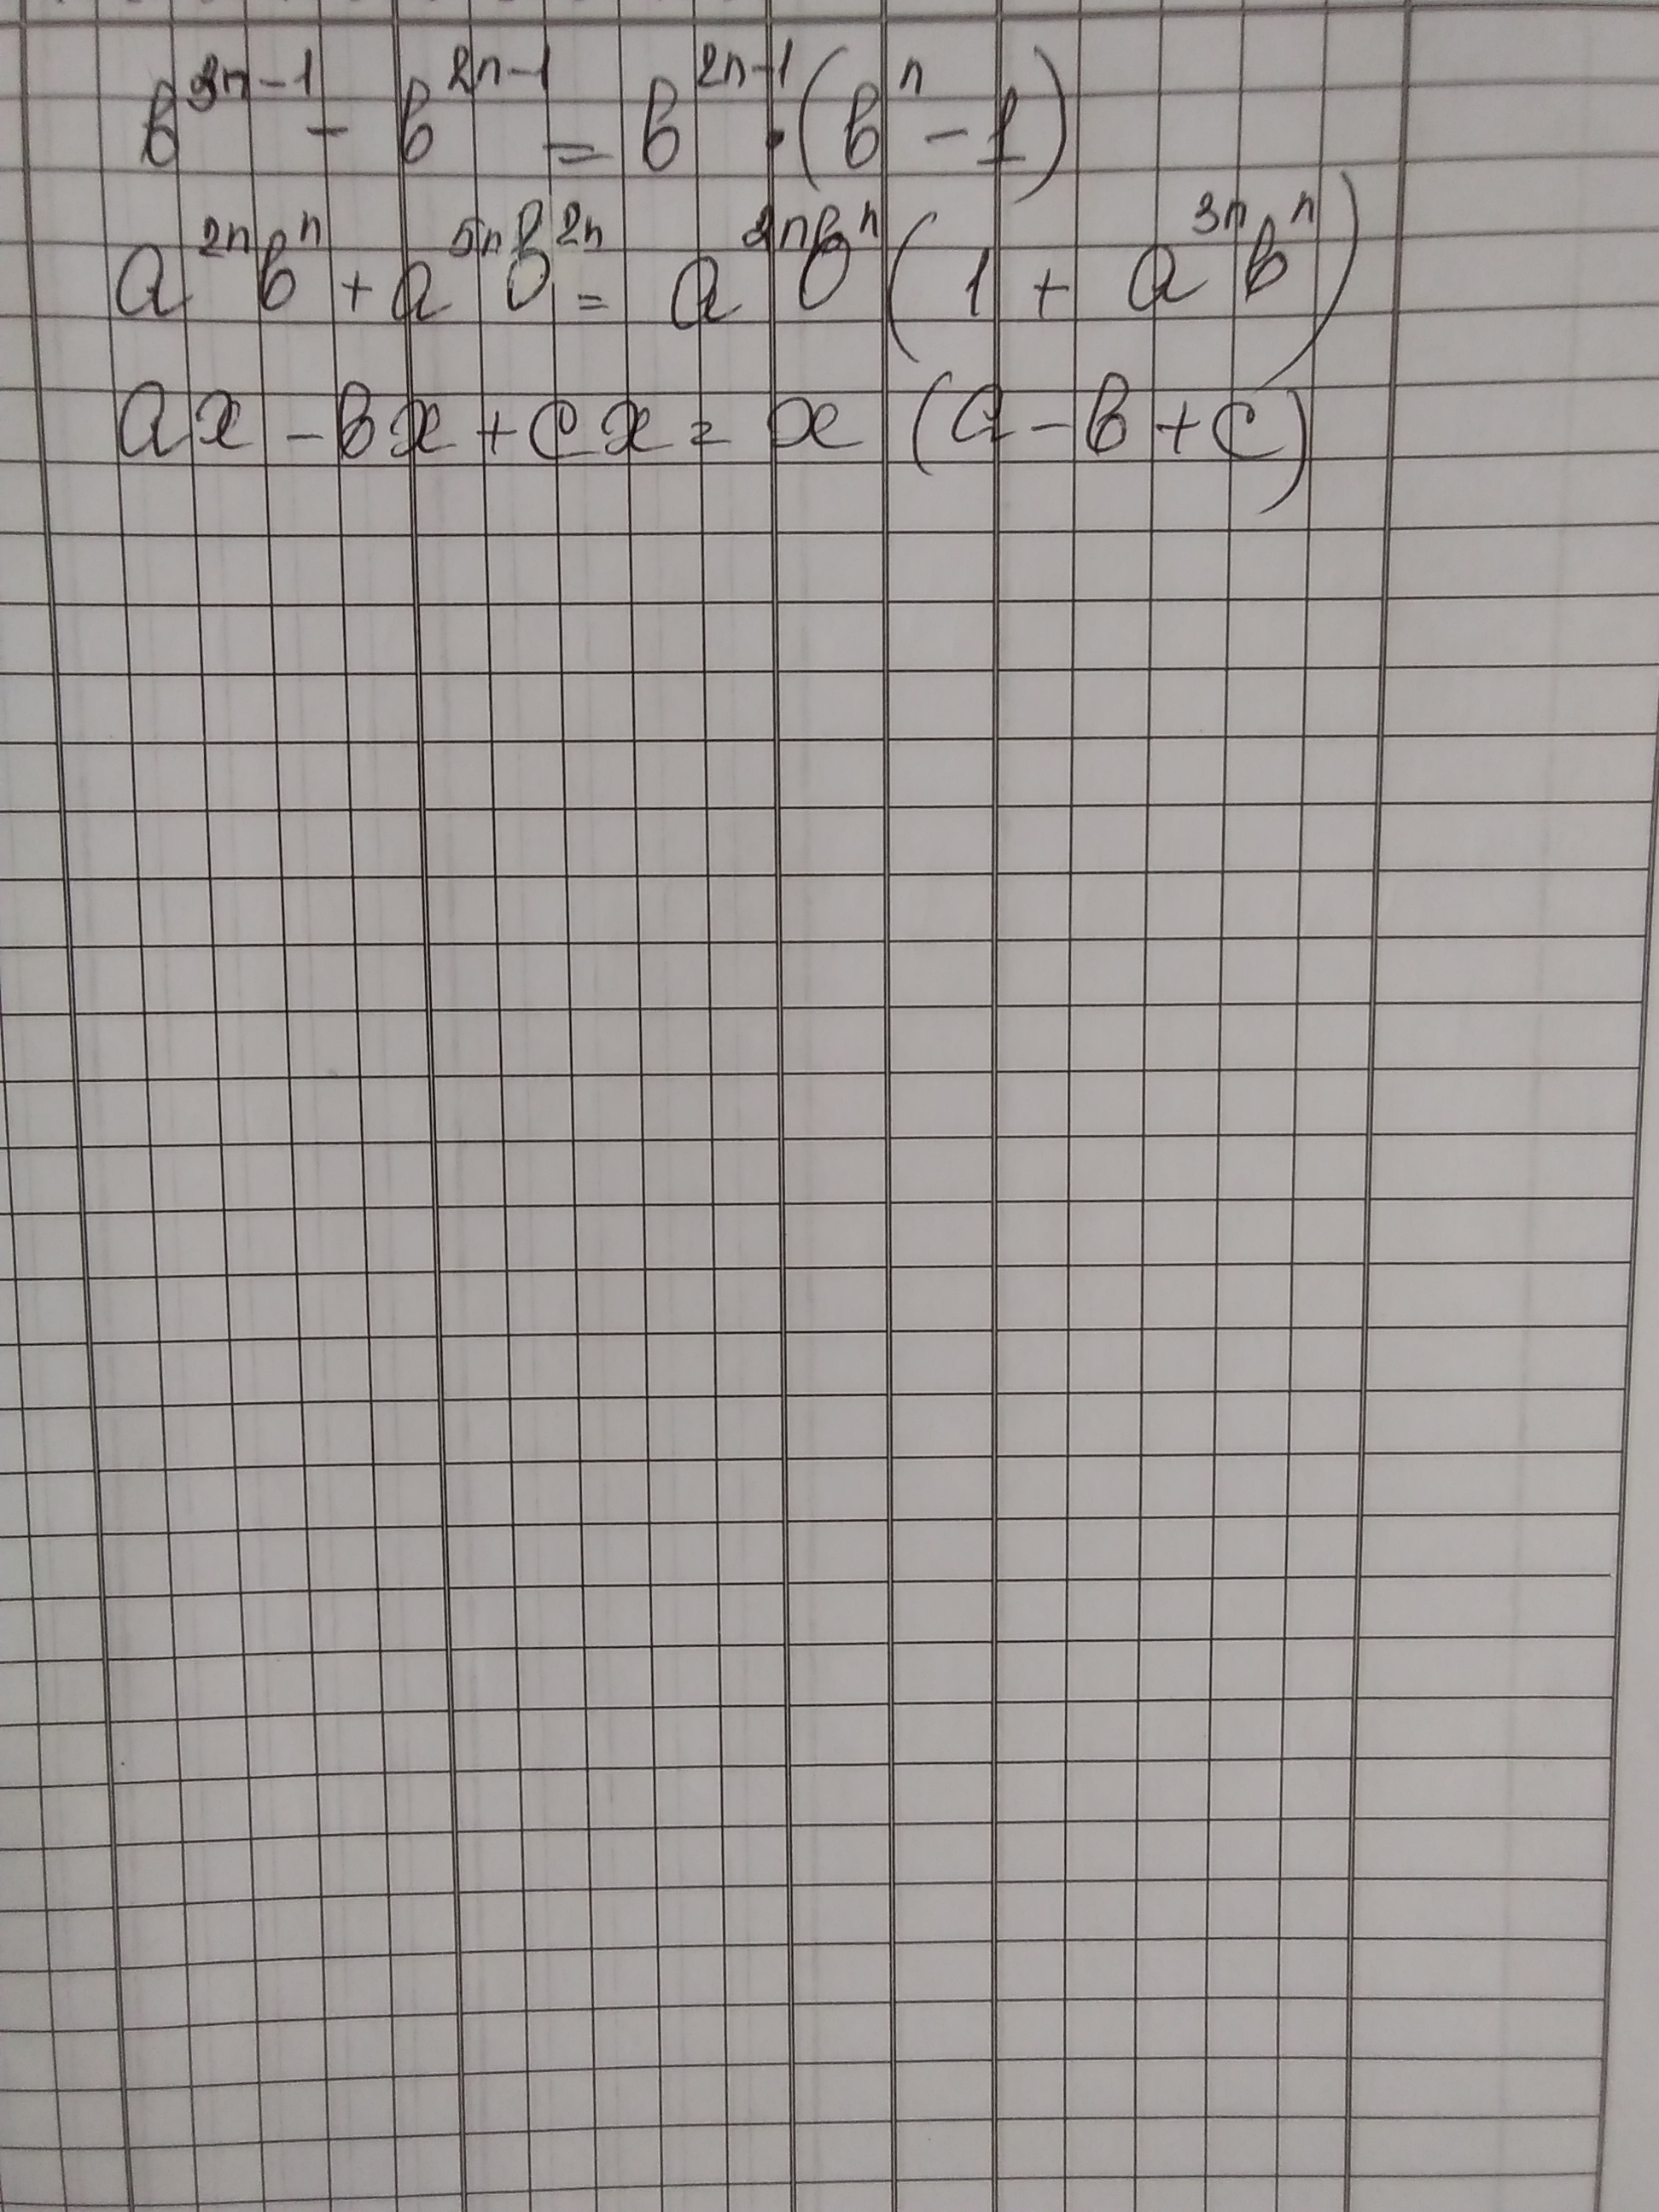 b^{3n-1} - b^{2n-1} = b^{2n-1} · (b^n - 1)
a^{2n}b^n + a^{5n}b^{2n} = a^{2n}b^n (1 + a^{3n}b^n)
ax - bx + cx = x (a - b + c)